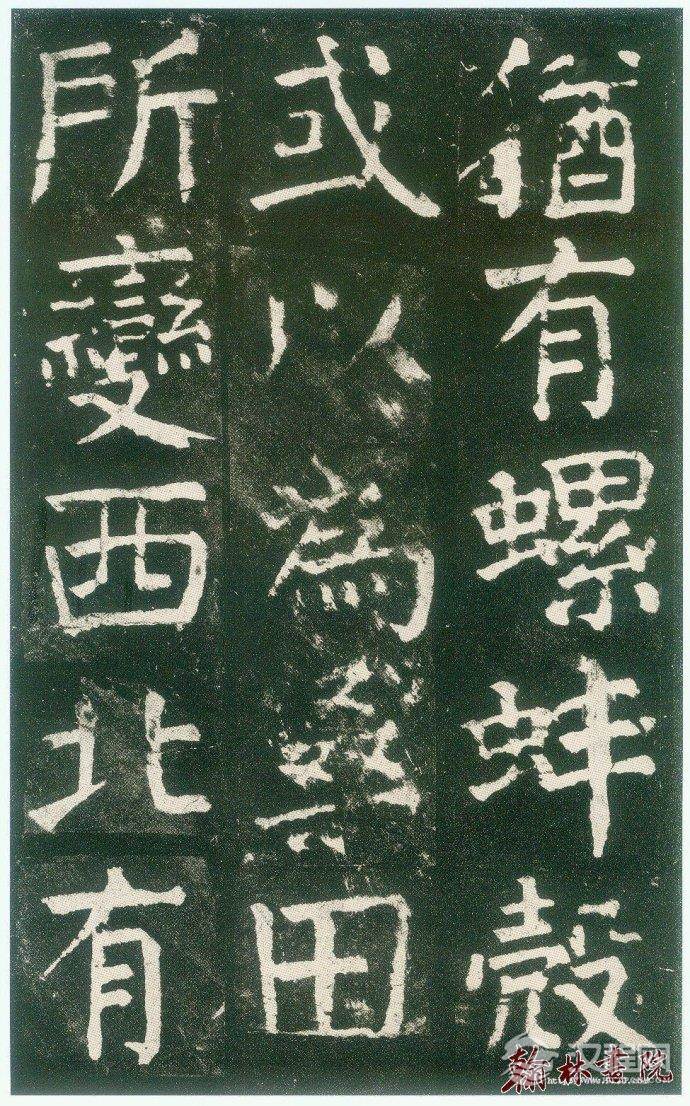 猶有螺蚌殼
或以為桑田
所變西北有
汉程网
翰林書院